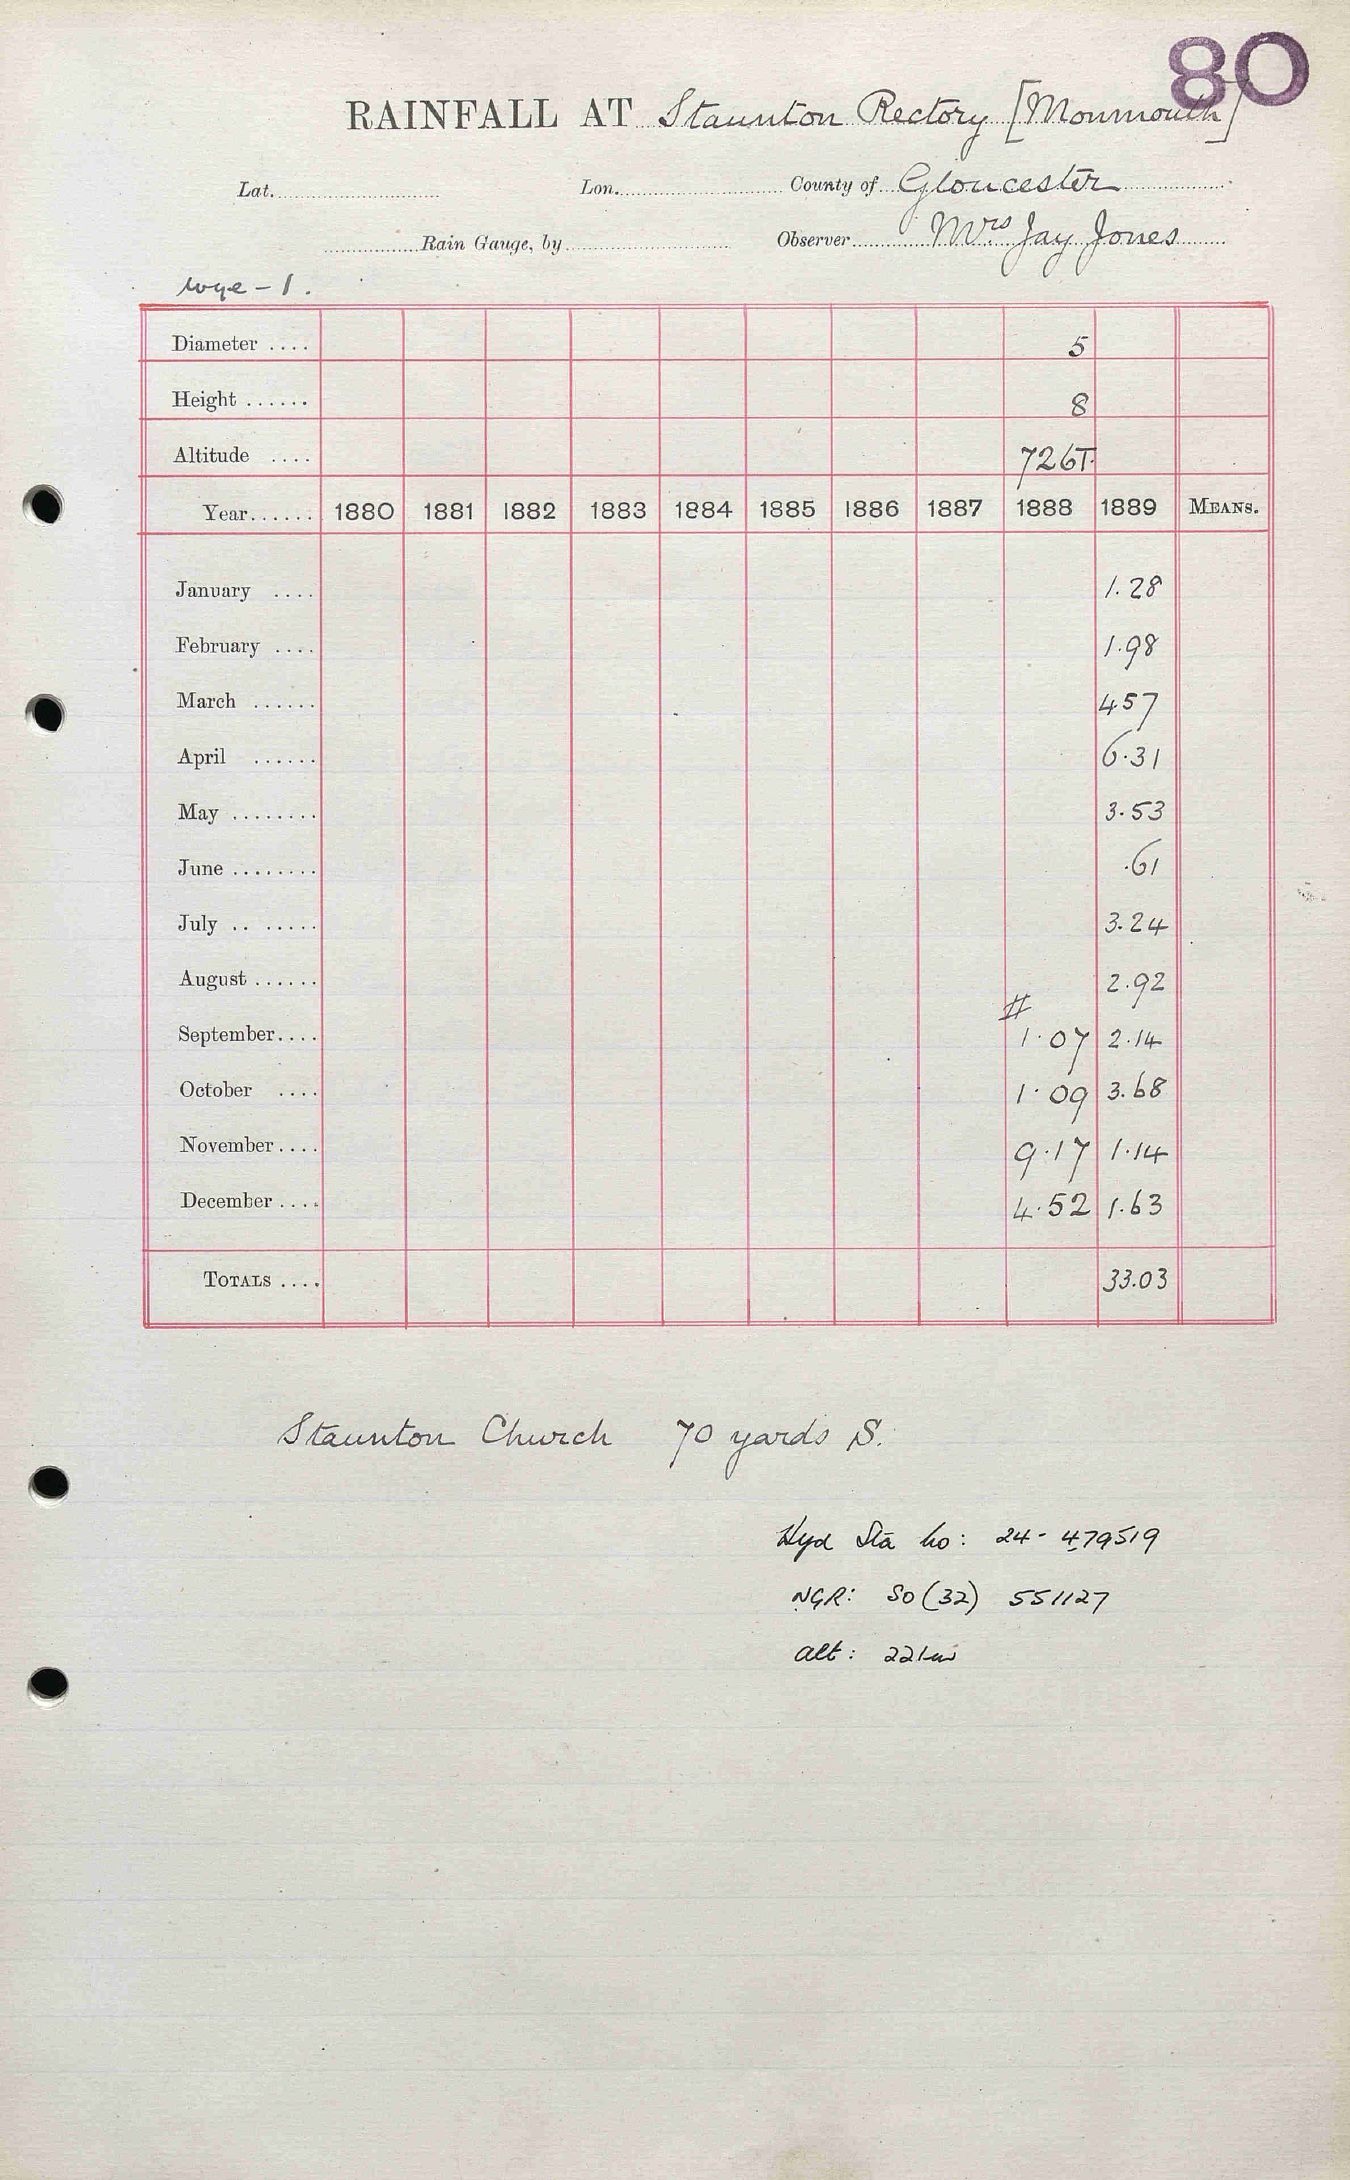 80
RAINFALL AT Staunton Rectory [Monmouth]
Lat. Lon. County of Gloucester
Rain Gauge, by Observer Mrs Jay Jones
Wye - 1.
Diameter .... 5
Height ...... 8
Altitude .... 726T.
Year...... 1880 1881 1882 1883 1884 1885 1886 1887 1888 1889 MEANS.
January .... 1.28
February .... 1.98
March ...... 457
April ...... 6.31
May ........ 3.53
June ........ .61
July .. ..... 3.24
August ...... 2.92
#
September.... 1.07 2.14
October .... 1.09 3.68
November.... 9.17 1.14
December .... 4.52 1.63
TOTALS .... 33.03
Staunton Church 70 yards S.
Hyd Sta No: 24- 479519
NGR: SO (32) 551127
Alt: 221m